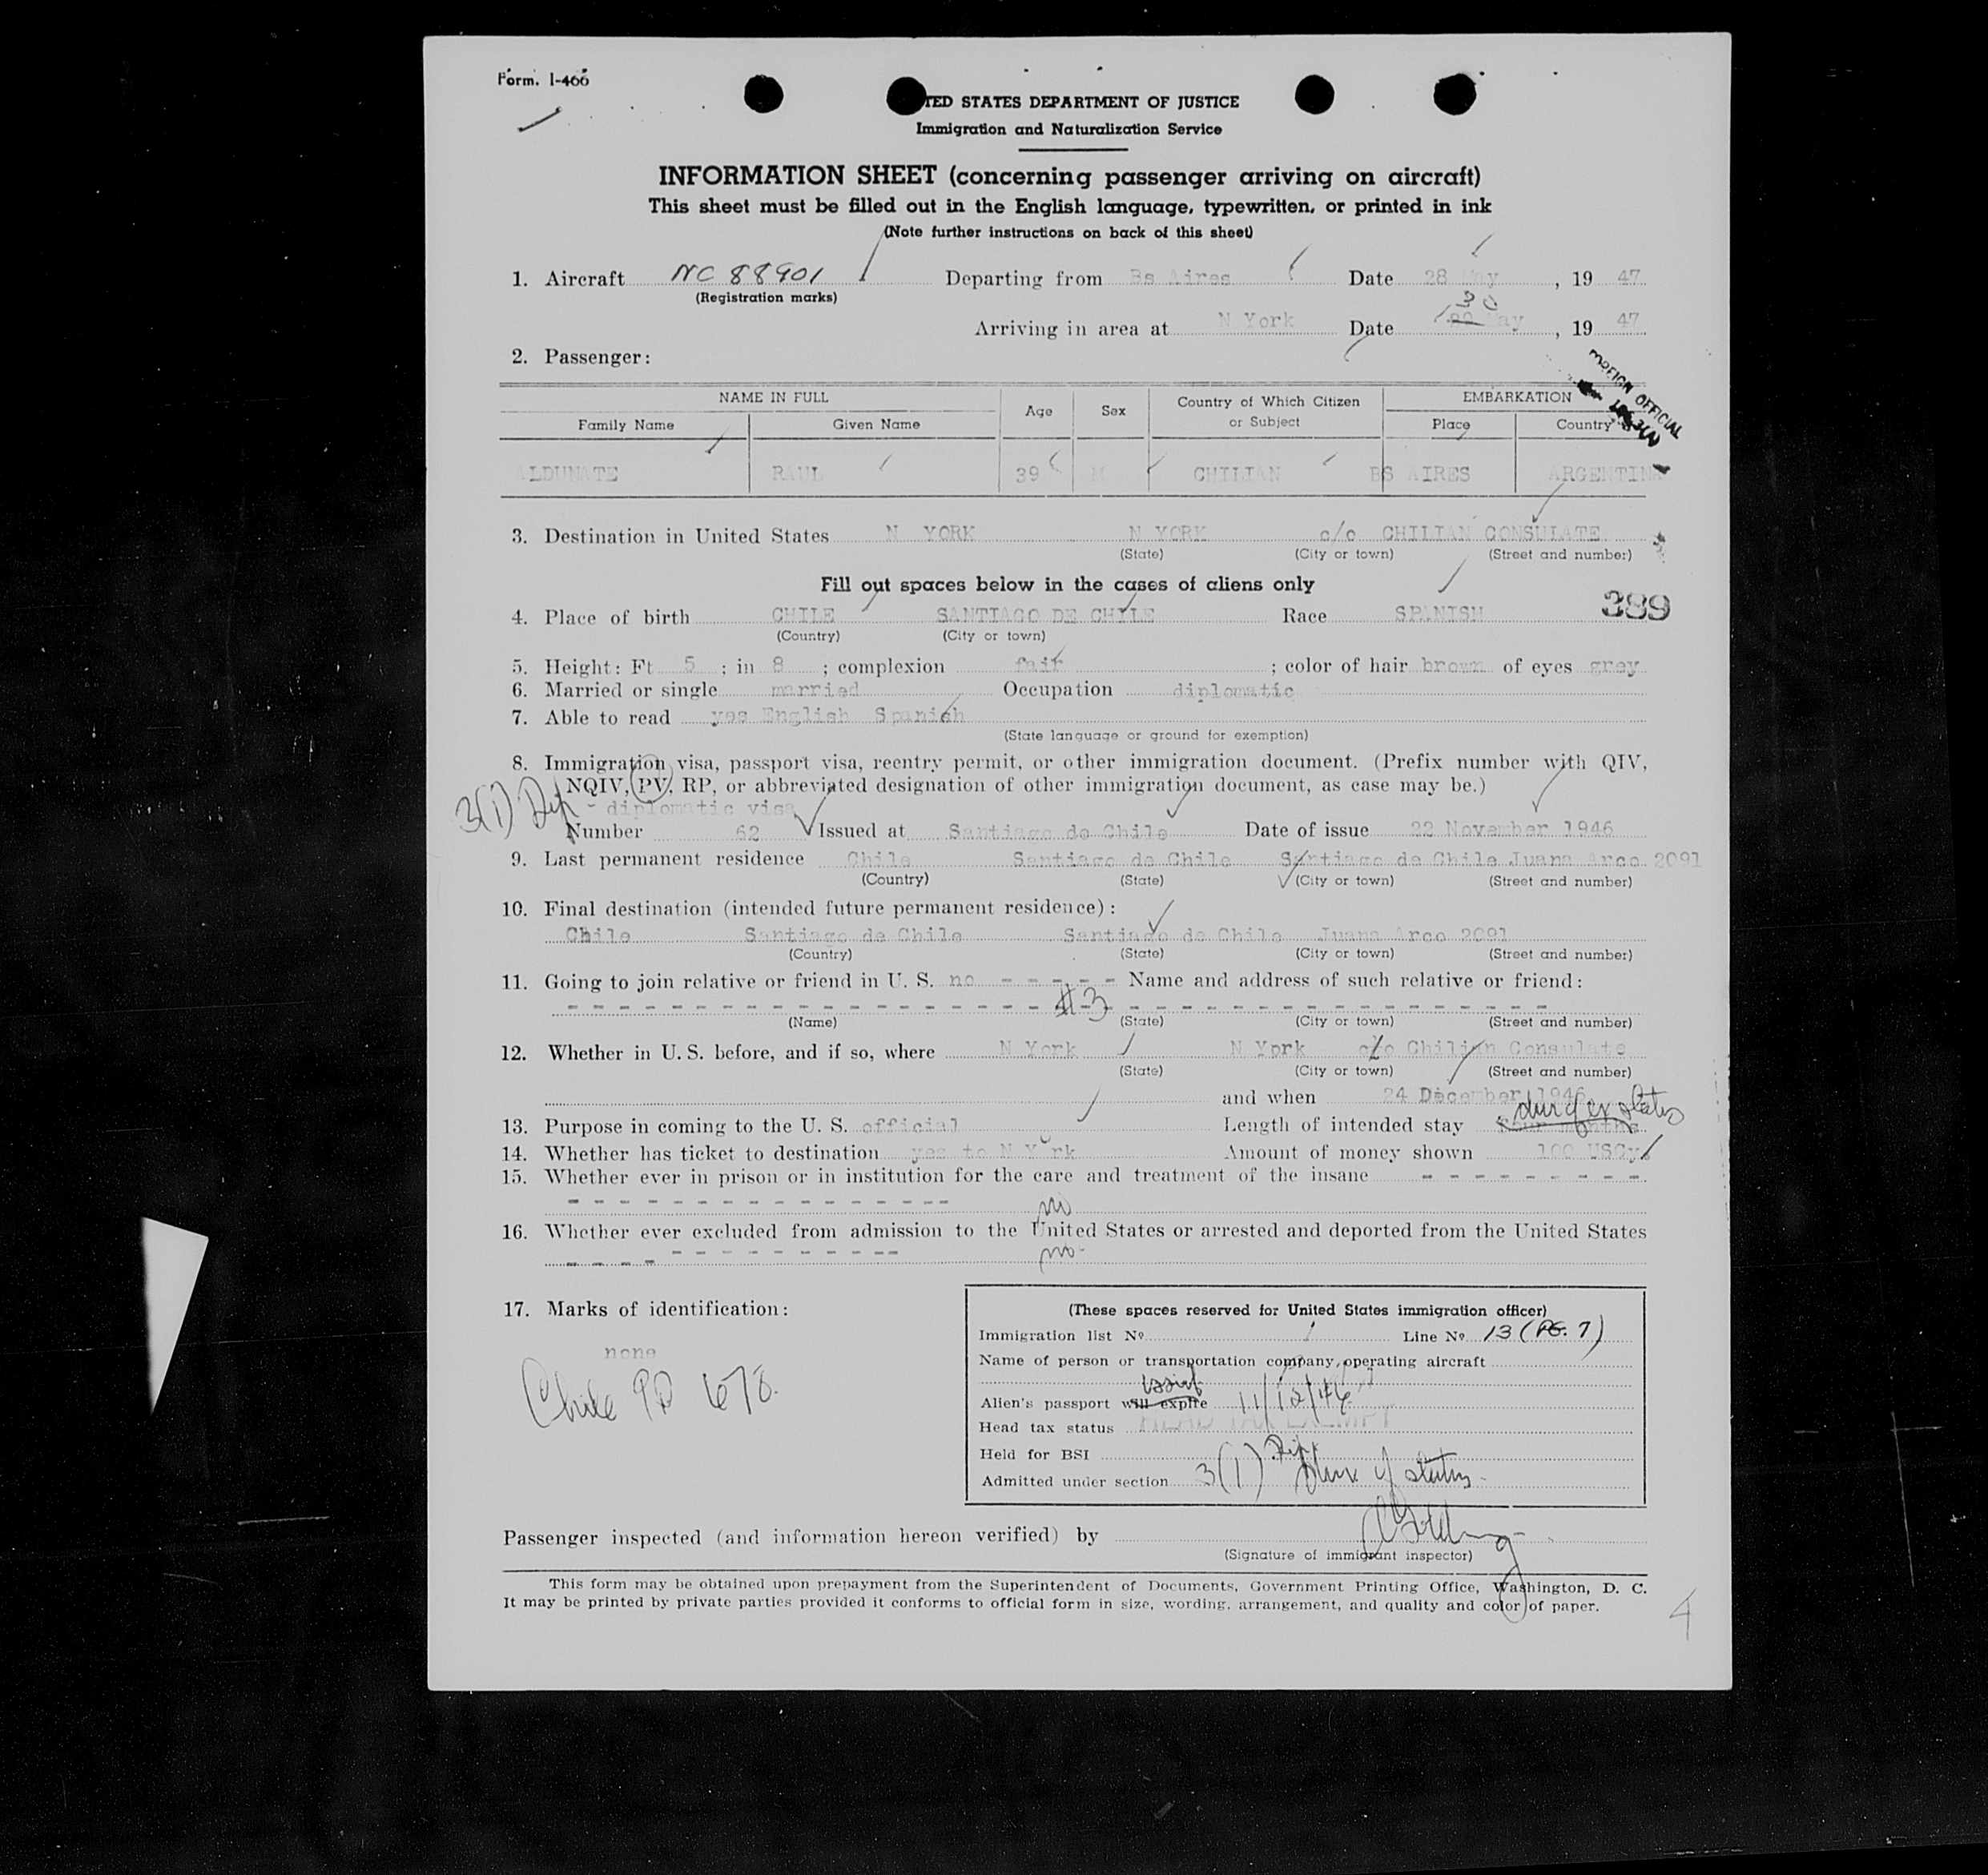 Form. I-466
TED STATES DEPARTMENT OF JUSTICE
Immigration and Naturalization Service
INFORMATION SHEET (concerning passenger arriving on aircraft)
This sheet must be filled out in the English language, typewritten, or printed in ink
(Note further instructions on back of this sheet)
1. Aircraft NC 88901 Departing from Bs Aires Date 28 May, 19 47
(Registration marks)
30
Arriving in area at N York Date May, 19 47
2. Passenger:
FOREIGN OFFICIAL
NAME IN FULL Age Sex Country of Which Citizen or Subject EMBARKATION
Family Name Given Name Place Country
ALDUNATE RAUL 39 M CHILIAN BS AIRES ARGENTINA
3. Destination in United States N YORK N YORK c/o CHILIAN CONSULATE
(State) (City or town) (Street and number)
Fill out spaces below in the cases of aliens only
389
4. Place of birth CHILE SANTIAGO DE CHILE Race SPANISH
(Country) (City or town)
5. Height: Ft 5 ; in 8 ; complexion fair ; color of hair brown of eyes grey
6. Married or single married Occupation diplomatic
7. Able to read yes English Spanish
(State language or ground for exemption)
8. Immigration visa, passport visa, reentry permit, or other immigration document. (Prefix number with QIV,
NQIV, PV, RP, or abbreviated designation of other immigration document, as case may be.)
3(1) Dip - diplomatic visa
Number 62 Issued at Santiago de Chile Date of issue 22 November 1946
9. Last permanent residence Chile Santiago de Chile Santiago de Chile Juana Arco 2091
(Country) (State) (City or town) (Street and number)
10. Final destination (intended future permanent residence):
Chile Santiago de Chile Santiago de Chile Juana Arco 2091
(Country) (State) (City or town) (Street and number)
11. Going to join relative or friend in U. S. no - - - - - Name and address of such relative or friend:
#3
(Name) (State) (City or town) (Street and number)
12. Whether in U. S. before, and if so, where N York N York c/o Chilian Consulate
(State) (City or town) (Street and number)
and when 24 December 1946
13. Purpose in coming to the U. S. official Length of intended stay dur of status
14. Whether has ticket to destination yes to N York Amount of money shown 100 USCy.
15. Whether ever in prison or in institution for the care and treatment of the insane - - - - - - - - -
no
16. Whether ever excluded from admission to the United States or arrested and deported from the United States
no -
17. Marks of identification:
none
Chile PP 678.
(These spaces reserved for United States immigration officer)
Immigration list No. Line No. 13 (PG. 7)
Name of person or transportation company, operating aircraft
issued
Alien's passport will expire 11/12/46
Head tax status HEAD TAX EXEMPT
Held for BSI
Admitted under section 3(1) Dip. Dur of status -
Passenger inspected (and information hereon verified) by
(Signature of immigrant inspector)
This form may be obtained upon prepayment from the Superintendent of Documents, Government Printing Office, Washington, D. C.
It may be printed by private parties provided it conforms to official form in size, wording, arrangement, and quality and color of paper.
4